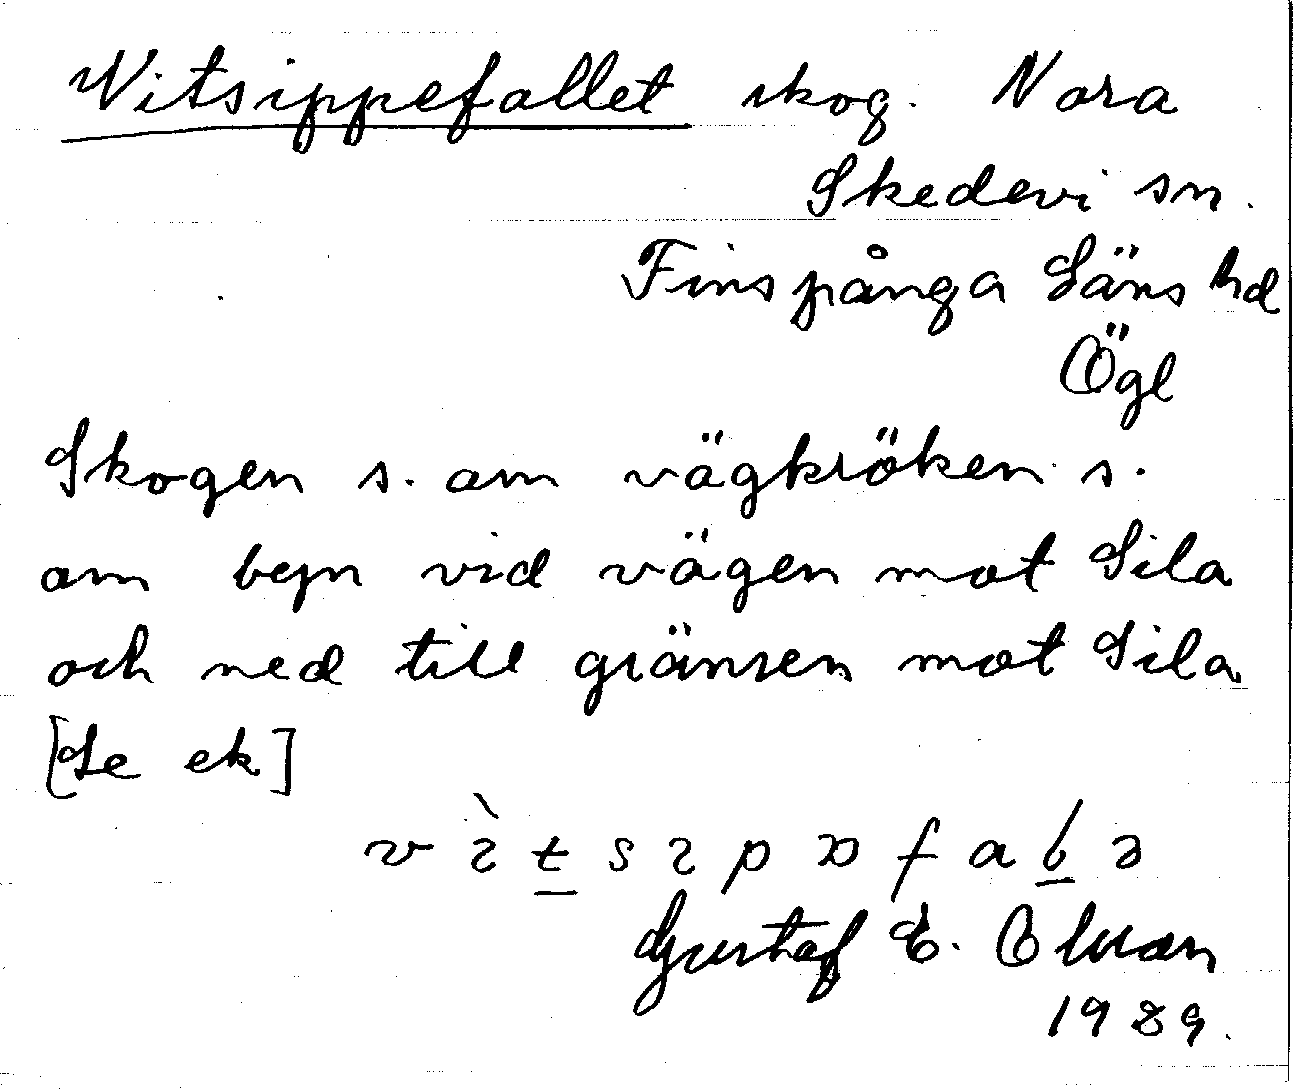 Vitsippefallet skog. Nora
Skedevi sn.
Finspånga Läns hd
Ögl
Skogen s. om vägkröken s.
om byn vid vägen mot Sila
och ned till gränsen mot Sila
[Se ek]
Gustaf E. Olsson
1929.